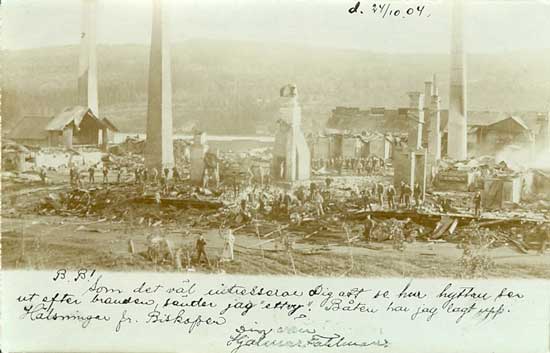 d. 24/10.04,
B. B!
Som det väl intresserar Dig att se hur hyttan ser
ut efter branden, sänder jag "ett vy". Båten har jag lagt upp.
Hälsningar fr. Biskopfen
Din vän
Hjalmar